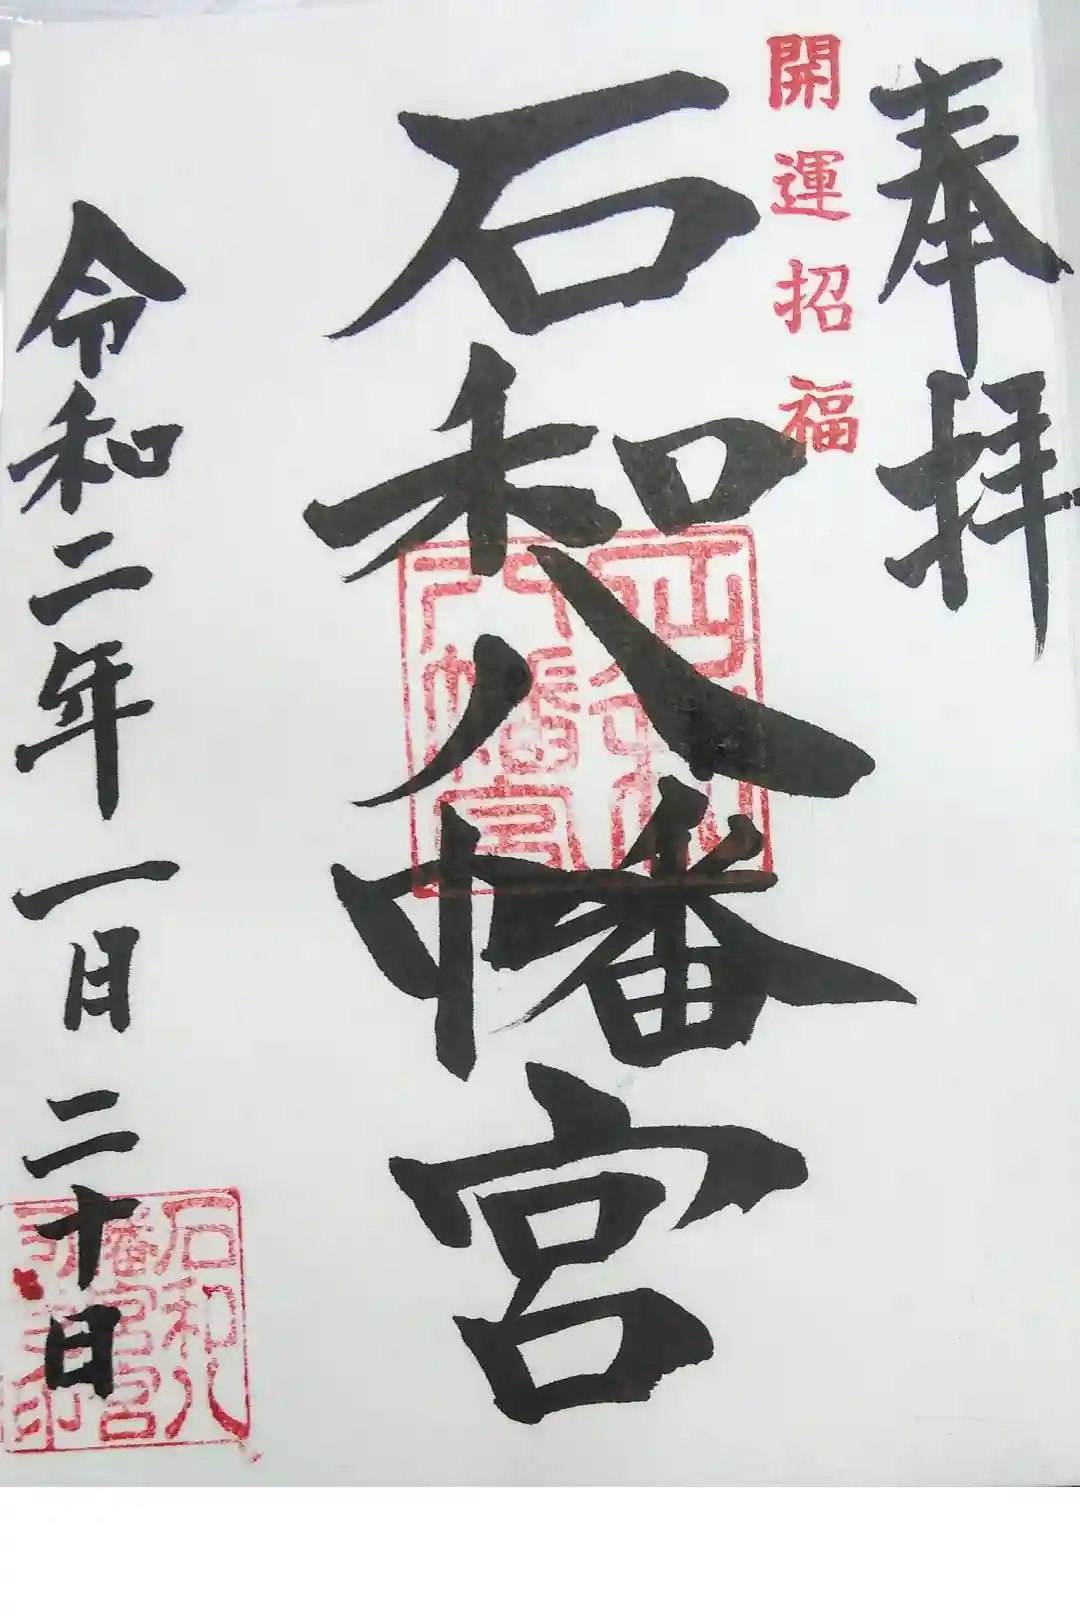 奉拝
開運招福
石和八幡宮
令和二年一日二十日
石和
八幡宮
石和八
幡宮宮
司之印